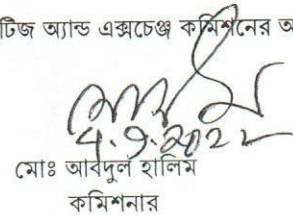 টিজ অ্যান্ড এক্সচেঞ্জ কমিশনের অ
৭.৭.২০২২
মোঃ আবদুল হালিম
কমিশনার